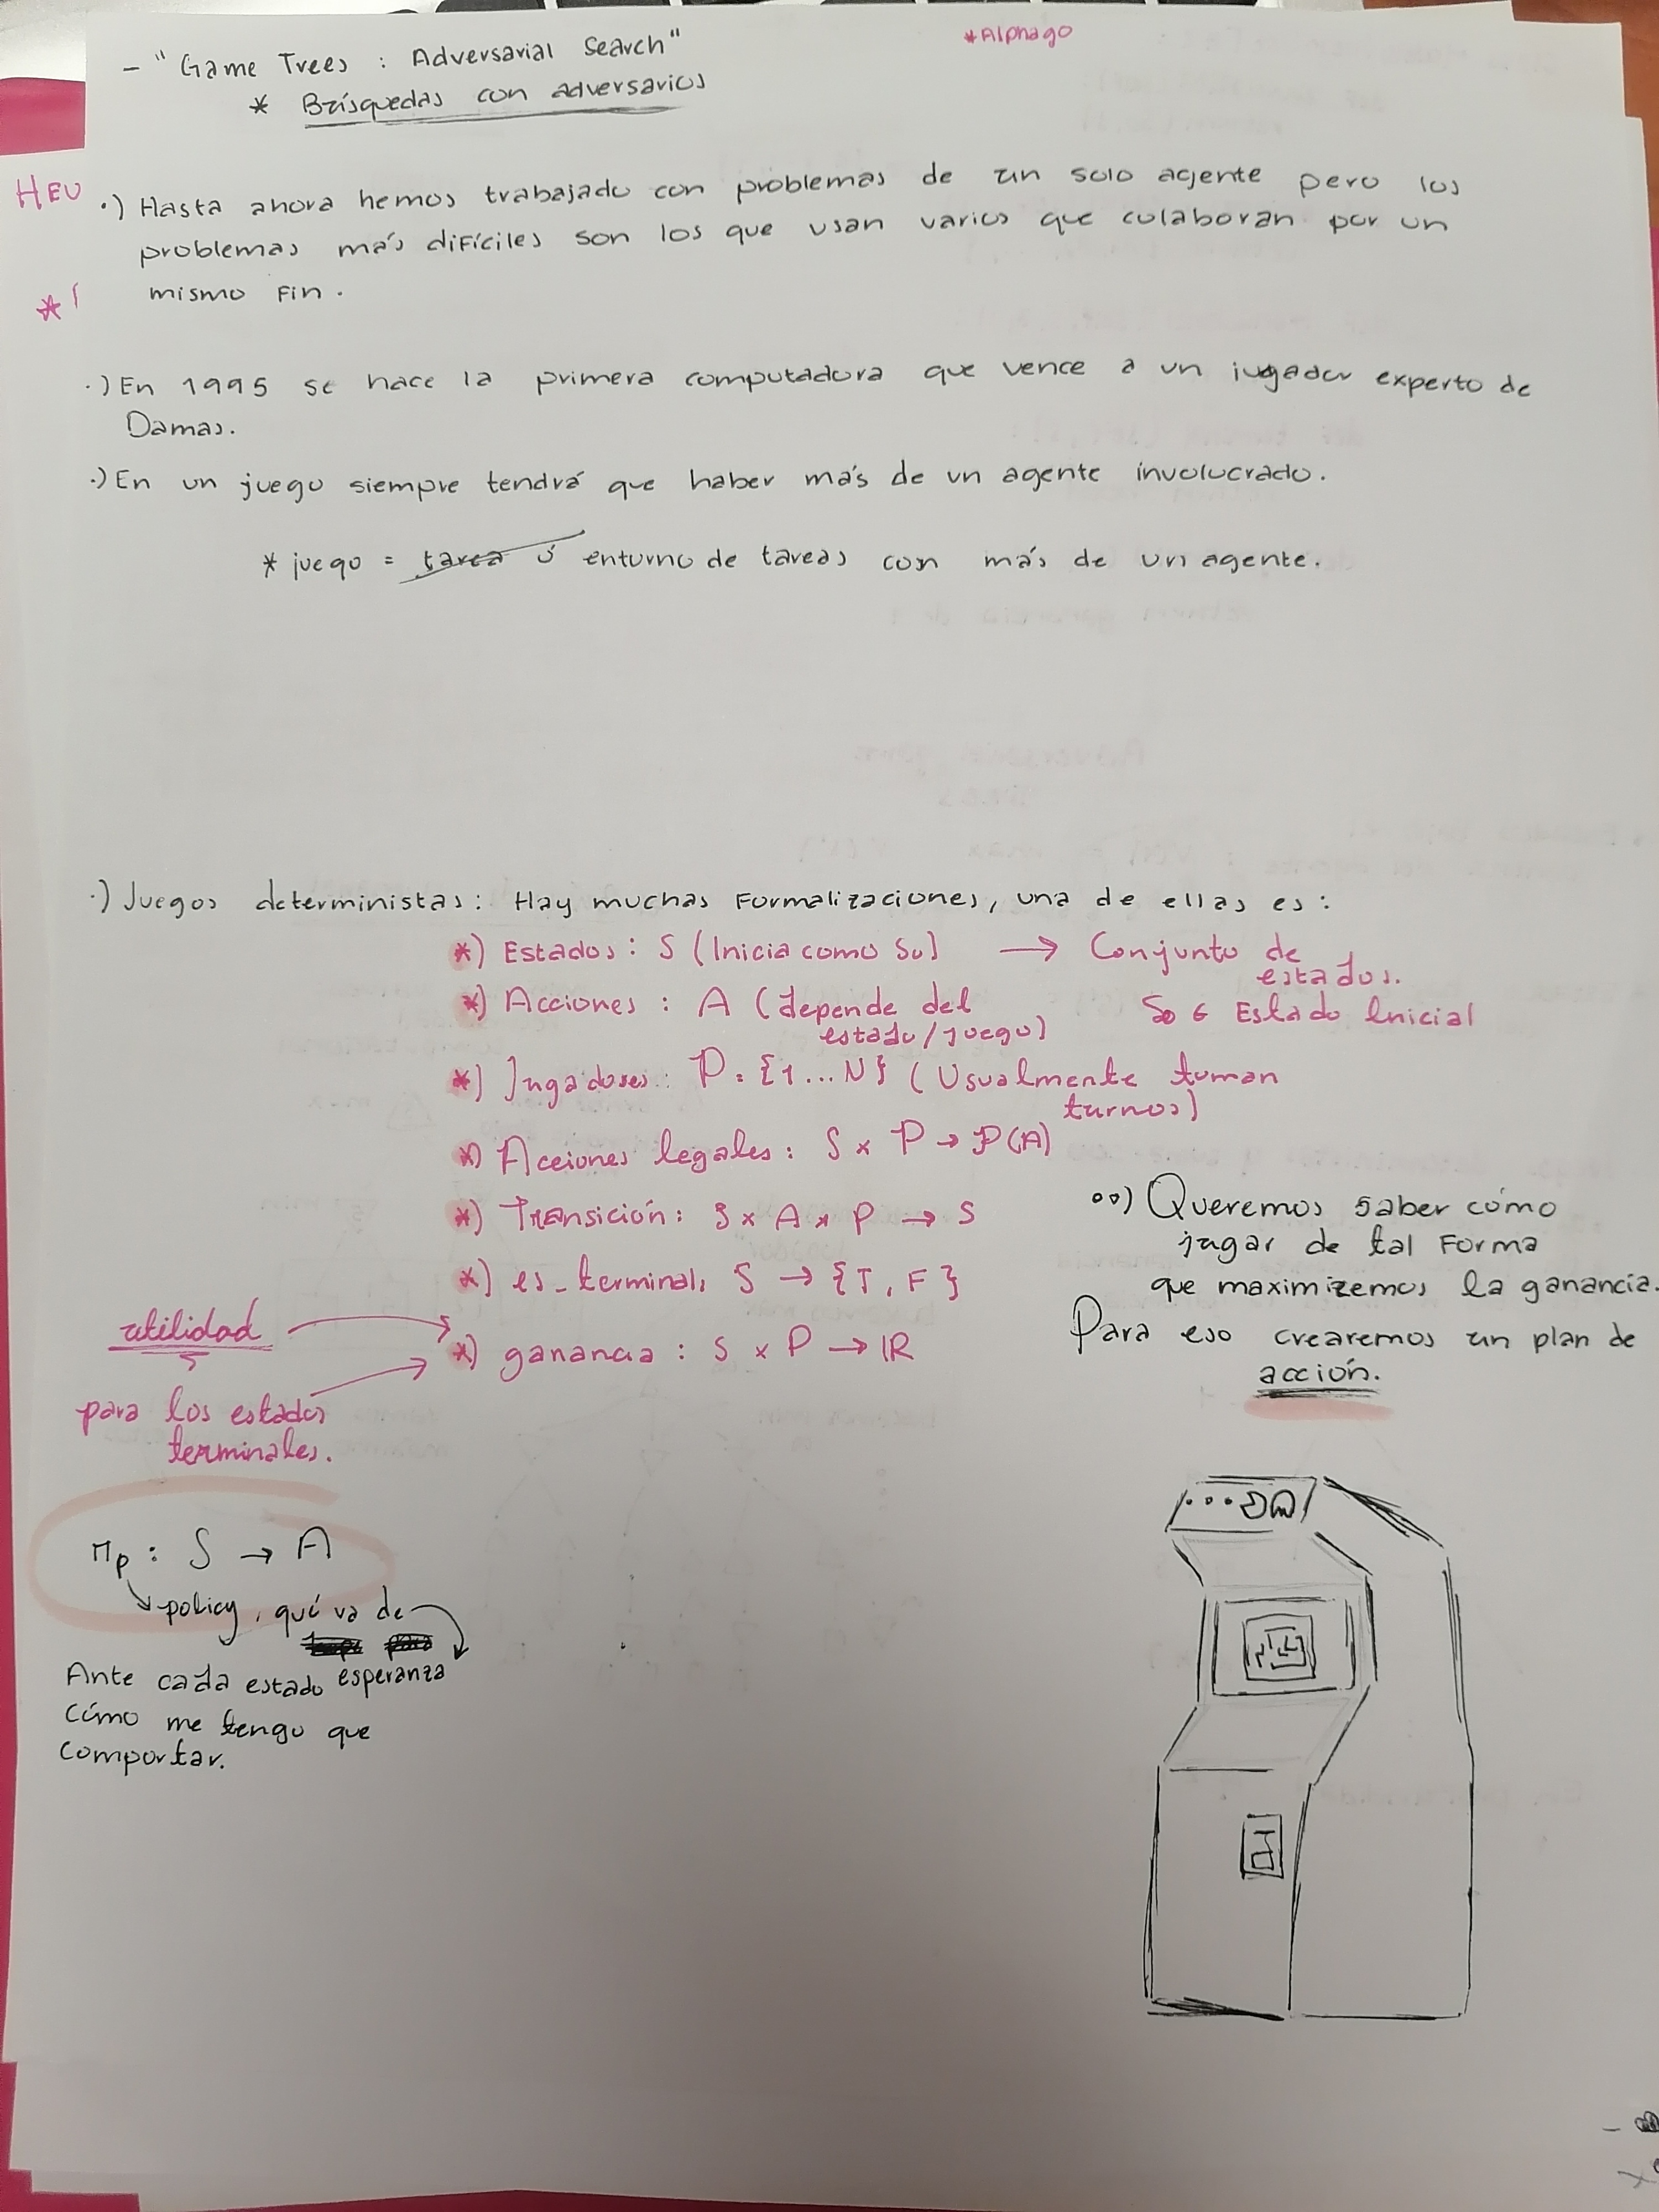 *Alphago
- "Game Trees : Adversarial Search"
* Búsquedas con adversarios
HEU
·) Hasta ahora hemos trabajado con problemas de un solo agente pero los
problemas más difíciles son los que usan varios que colaboran por un
mismo fin.
*
·) En 1995 se hace la primera computadora que vence a un jugador experto de
Damas.
·) En un juego siempre tendrá que haber más de un agente involucrado.
* juego = tarea ó entorno de tareas con más de un agente.
·) Juegos deterministas: Hay muchas Formalizaciones, una de ellas es:
*) Estados: S (Inicia como S0) → Conjunto de
estados.
*) Acciones : A (depende del
estado/juego)
S0 ∈ Estado Inicial
*) Jugadores: P = {1...N} (Usualmente toman
turnos)
*) Acciones legales: S x P → P(A)
*) Transición: S x A x P → S
*) es_terminal: S → {T, F}
*) ganancia : S x P → IR
utilidad
para los estados
terminales.
°°) Queremos saber cómo
jugar de tal Forma
que maximizemos la ganancia.
Para eso crearemos un plan de
acción.
πp : S → A
policy, qué va de
esperanza
Ante cada estado
cómo me tengo que
comportar.